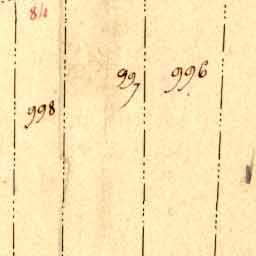 84
997 996
998